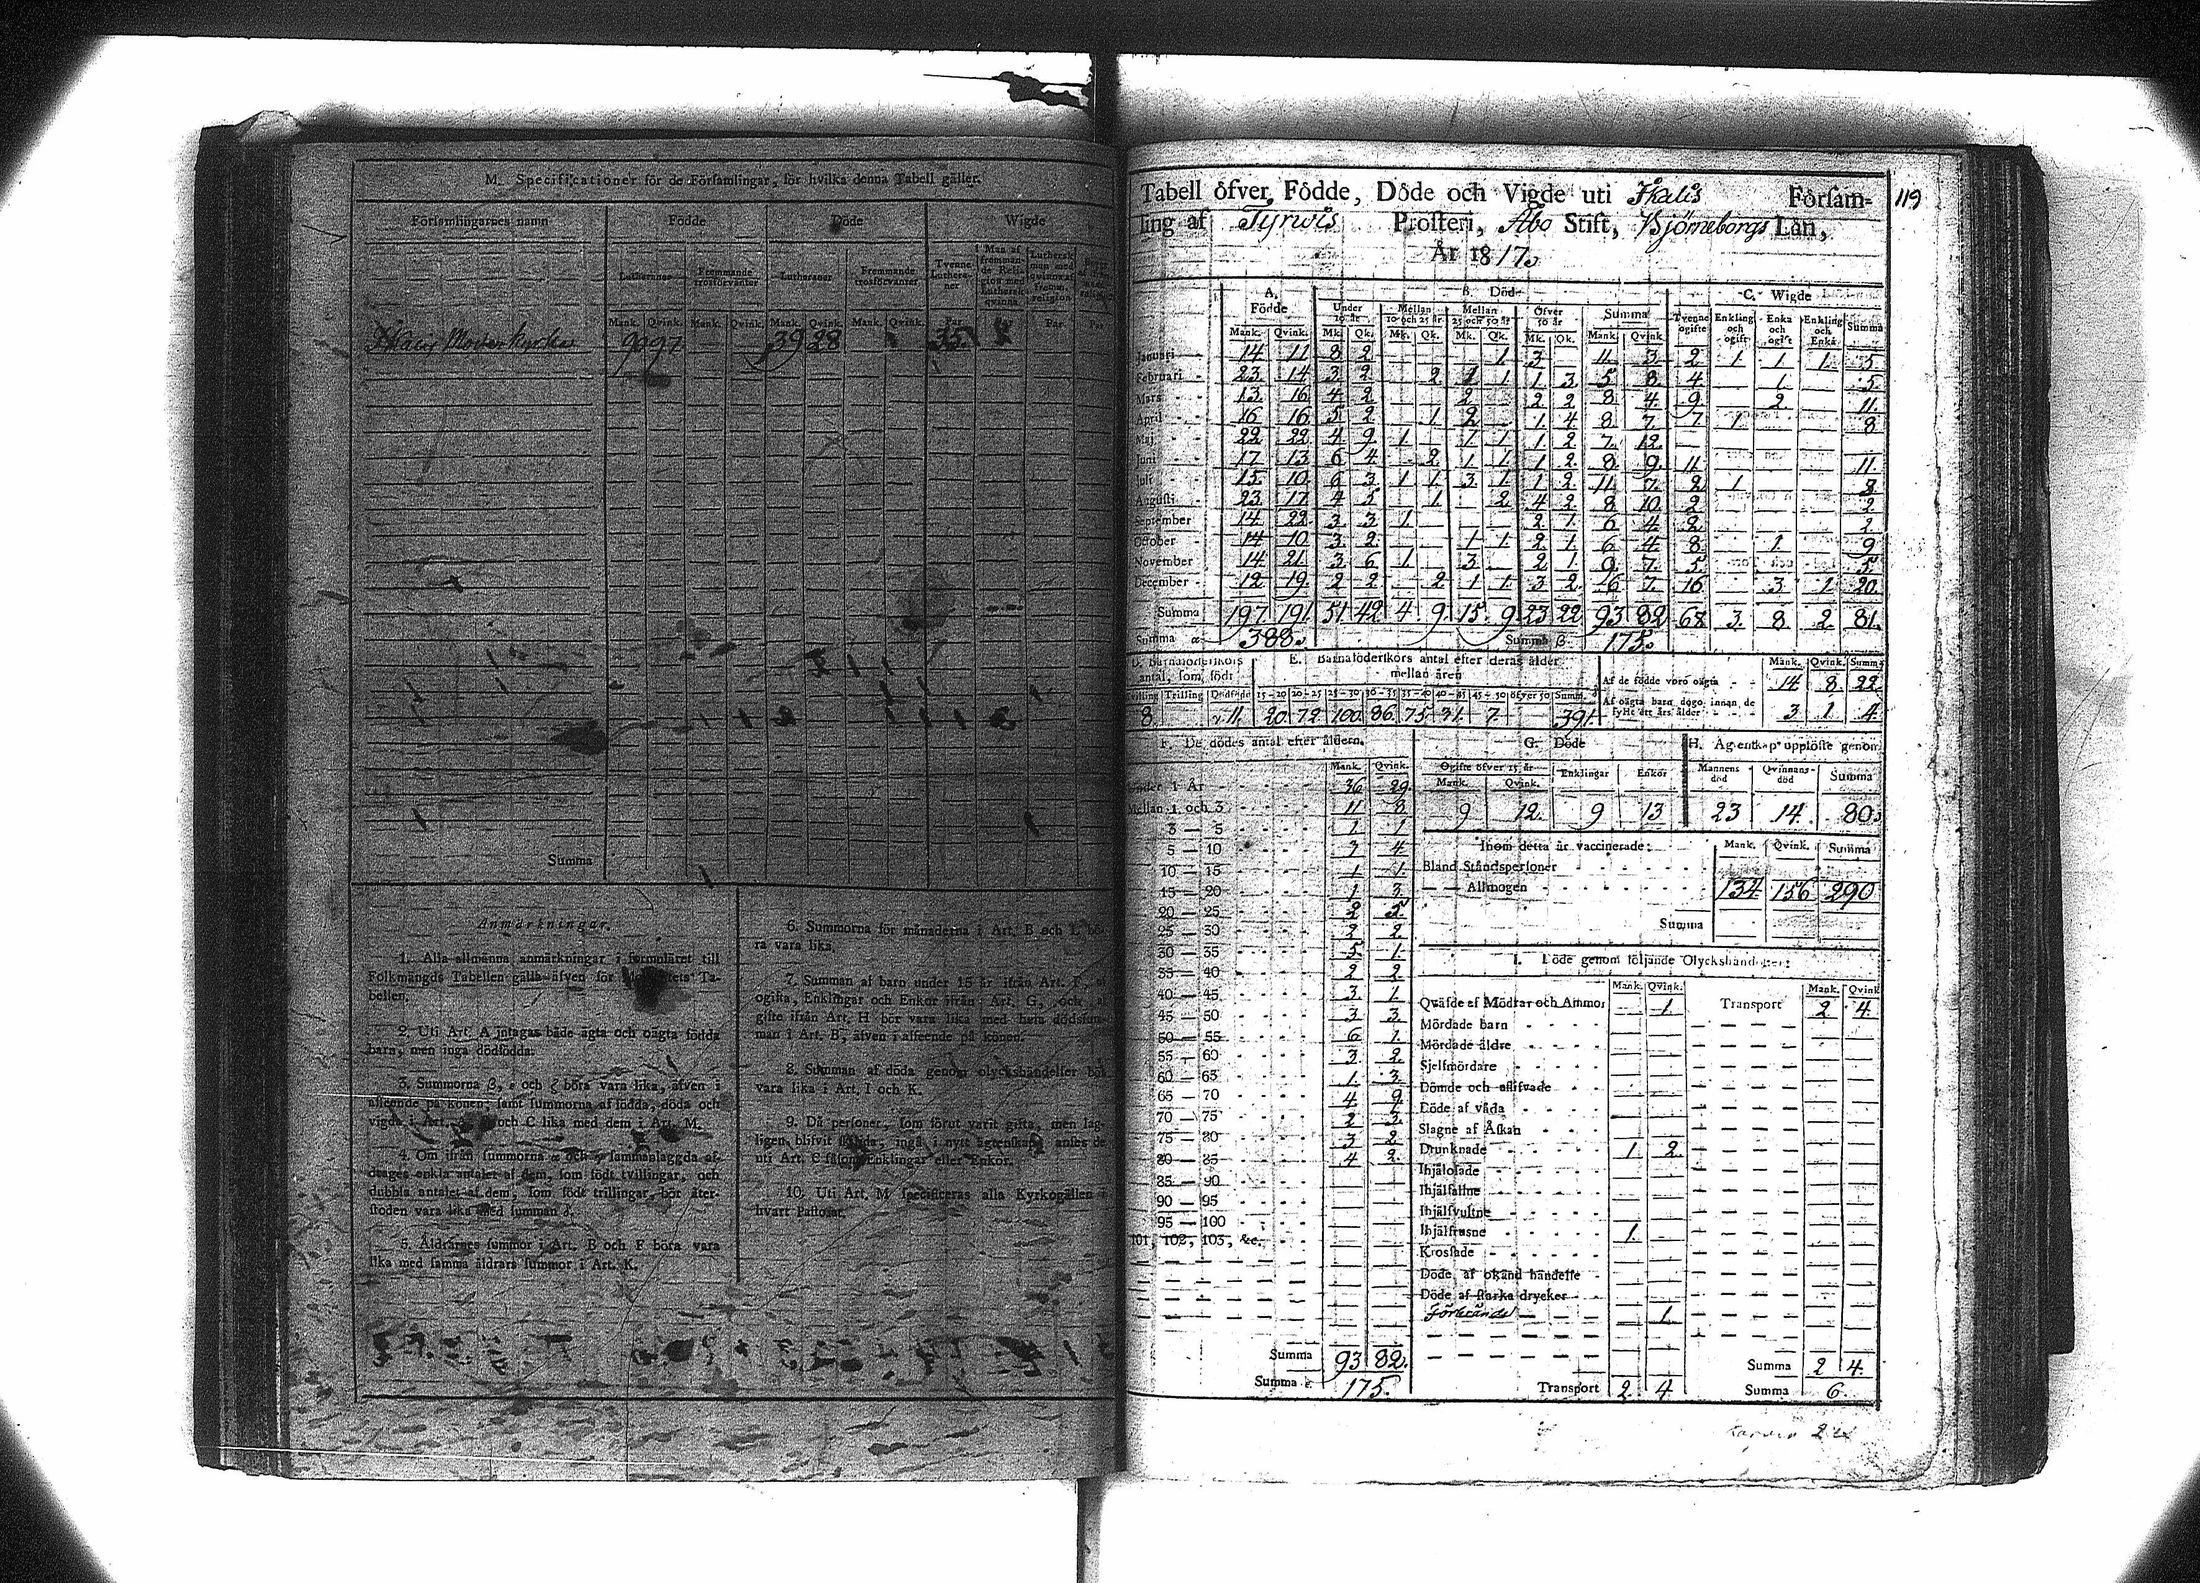 M. Specificationer för de Församlingar, för hvilka denna Tabell gäller.
Församlingarnes namn Födde Döde Wigde
Lutheraner Fremmande trosförvanter Lutheraner Fremmande trosförvanter Tvenne Lutheraner Man af fremmande Religion med Luthersk qvinna Luthersk man med qvinna af fremm. religion
Mank. Qvink. Mank. Qvink. Mank. Qvink. Mank. Qvink. Par
Moderkyrka 90 97 39 28 35
Summa
Anmärkningar.
1. Alla allmänna anmärkningar i formuläret till
Folkmängds Tabellen gälla äfven för Ta-
bellen.
2. Uti Art. A intagas både ägta och oägta födda
barn, men inga dödfödda.
3. Summorna β, ε och ζ böra vara lika, äfven i
afseende på könen; samt summorna af födda, döda och
vigda i Art. och C lika med dem i Art. M.
4. Om ifrån summorna α och γ sammanlaggda af-
drages enkla antalet af dem, som födt tvillingar, och
dubbla antalet af dem, som födt trillingar, bör åter-
stoden vara lika med summan δ.
5. Åldrarnes summor i Art. B och F böra vara
lika med samma åldrars summor i Art. K.
6. Summorna för månaderna i Art. B och L bö-
ra vara lika.
7. Summan af barn under 15 år ifrån Art. F,
ogifta, Enklingar och Enkor ifrån Art. G, och
gifte ifrån Art. H bör vara lika med hela dödssum-
man i Art. B, äfven i afseende på könen.
8. Summan af döda genom olyckshändelser bör
vara lika i Art. I och K.
9. Då personer, som förut varit gifta, men lag-
ligen blifvit skilda, ingå i nytt ägtenskap, anses de
uti Art. C såsom Enklingar eller Enkor.
10. Uti Art. M specificeras alla Kyrkogällen i
hvart Pastorat.
Tabell öfver Födde, Döde och Vigde uti Ikalis Församling 119
ling af Tyrwis Prosteri, Åbo Stift, Björneborgs Län,
År 1817.
A. Födde B. Död C. Wigde
Under 10 år Mellan 10 och 25 år Mellan 25 och 50 år Öfver 50 år Summa Tvenne ogifte Enkling och ogift Enka och ogift Enkling och Enka Summa
Mank. Qvink. Mk. Qk. Mk. Qk. Mk. Qk. Mk. Qk. Mank. Qvink.
Januari 14 11 8 2 1 3 11 3 2 1 1 1 5
Februari 23 14 3 2 2 1 1 1 3 5 8 4 1 5
Mars 13 16 4 2 2 2 2 8 4 9 2 11
April 16 16 5 2 1 2 1 4 8 7 7 1 8
Maj 22 22 4 9 1 1 1 1 2 7 12
Juni 17 13 6 4 2 1 1 1 2 8 9 11 11
Juli 15 10 6 3 1 1 3 1 1 2 11 7 2 1 3
Augusti 23 17 4 5 1 2 4 2 8 10 2 2
September 14 22 3 3 1 2 1 6 4 2 2
October 14 10 3 2 1 1 2 1 6 4 8 1 9
November 14 21 3 6 1 3 2 1 9 7 5 5
December 12 19 2 2 2 1 1 3 2 6 7 16 3 1 20
Summa 197 191 51 42 4 9 15 9 23 22 93 82 68 3 8 2 81
Summa α 388 Summa β 175
D. Barnaföderskors antal, som födt
E. Barnaföderskors antal efter deras ålder mellan åren
Mank. Qvink. Summa
Af de födde voro oägta 14 8 22
Af oägta barn dogo innan de fyllt ett års ålder 3 1 4
Tvilling Trilling Dödfödde 15-20 20-25 25-30 30-35 35-40 40-45 45-50 öfver 50 Summ. δ
8 11 20 72 100 86 75 31 7 391
F. De dödes antal efter åldern.
Mank. Qvink.
Under 1 År 36 29
Mellan 1 och 3 11 8
3 — 5 1 1
5 — 10 3 4
10 — 15 1 1
15 — 20 1 3
20 — 25 2 5
25 — 30 2 2
30 — 35 5 1
35 — 40 2 2
40 — 45 3 1
45 — 50 3 3
50 — 55 6 1
55 — 60 3 2
60 — 65 1 3
65 — 70 4 9
70 — 75 2 3
75 — 80 3 2
80 — 85 4 2
85 — 90
90 — 95
95 — 100
101, 102, 103, &c.
Summa 93 82
Summa ε 175
G. Döde
Ogifte öfver 15 år Enklingar Enkor
Mank. Qvink.
9 12 9 13
H. Ägtenskap upplöste genom
Mannens död Qvinnans död Summa
23 14 80
Inom detta år vaccinerade: Mank. Qvink. Summa
Bland Ståndspersoner
— — Allmogen 134 156 290
Summa
I. Döde genom följande Olyckshändelser:
Mank. Qvink. Mank. Qvink.
Qväfde af Mödrar och Ammor 1 Transport 2 4
Mördade barn
Mördade äldre
Sjelfmördare
Dömde och aflifvade
Döde af våda
Slagne af Åskan
Drunknade 1 2
Ihjälosade
Ihjälfallne
Ihjälsvultne
Ihjälfrusne 1
Krossade
Döde af okänd händelse
Döde af starka drycker
Förbrände 1
Summa 2 4
Transport 2 4 Summa 6